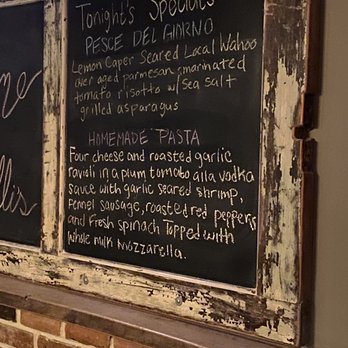 Tonight's Specials
PESCE DEL GIORNO
Lemon Caper Seared Local Wahoo
over aged parmesan, marinated
tomato risotto w/ sea salt
grilled asparagus
HOMEMADE PASTA
Four cheese and roasted garlic
ravioli in a plum tomato alla vodka
sauce with garlic seared shrimp,
fennel sausage, roasted red peppers
and fresh spinach Topped with
whole milk mozzarella.